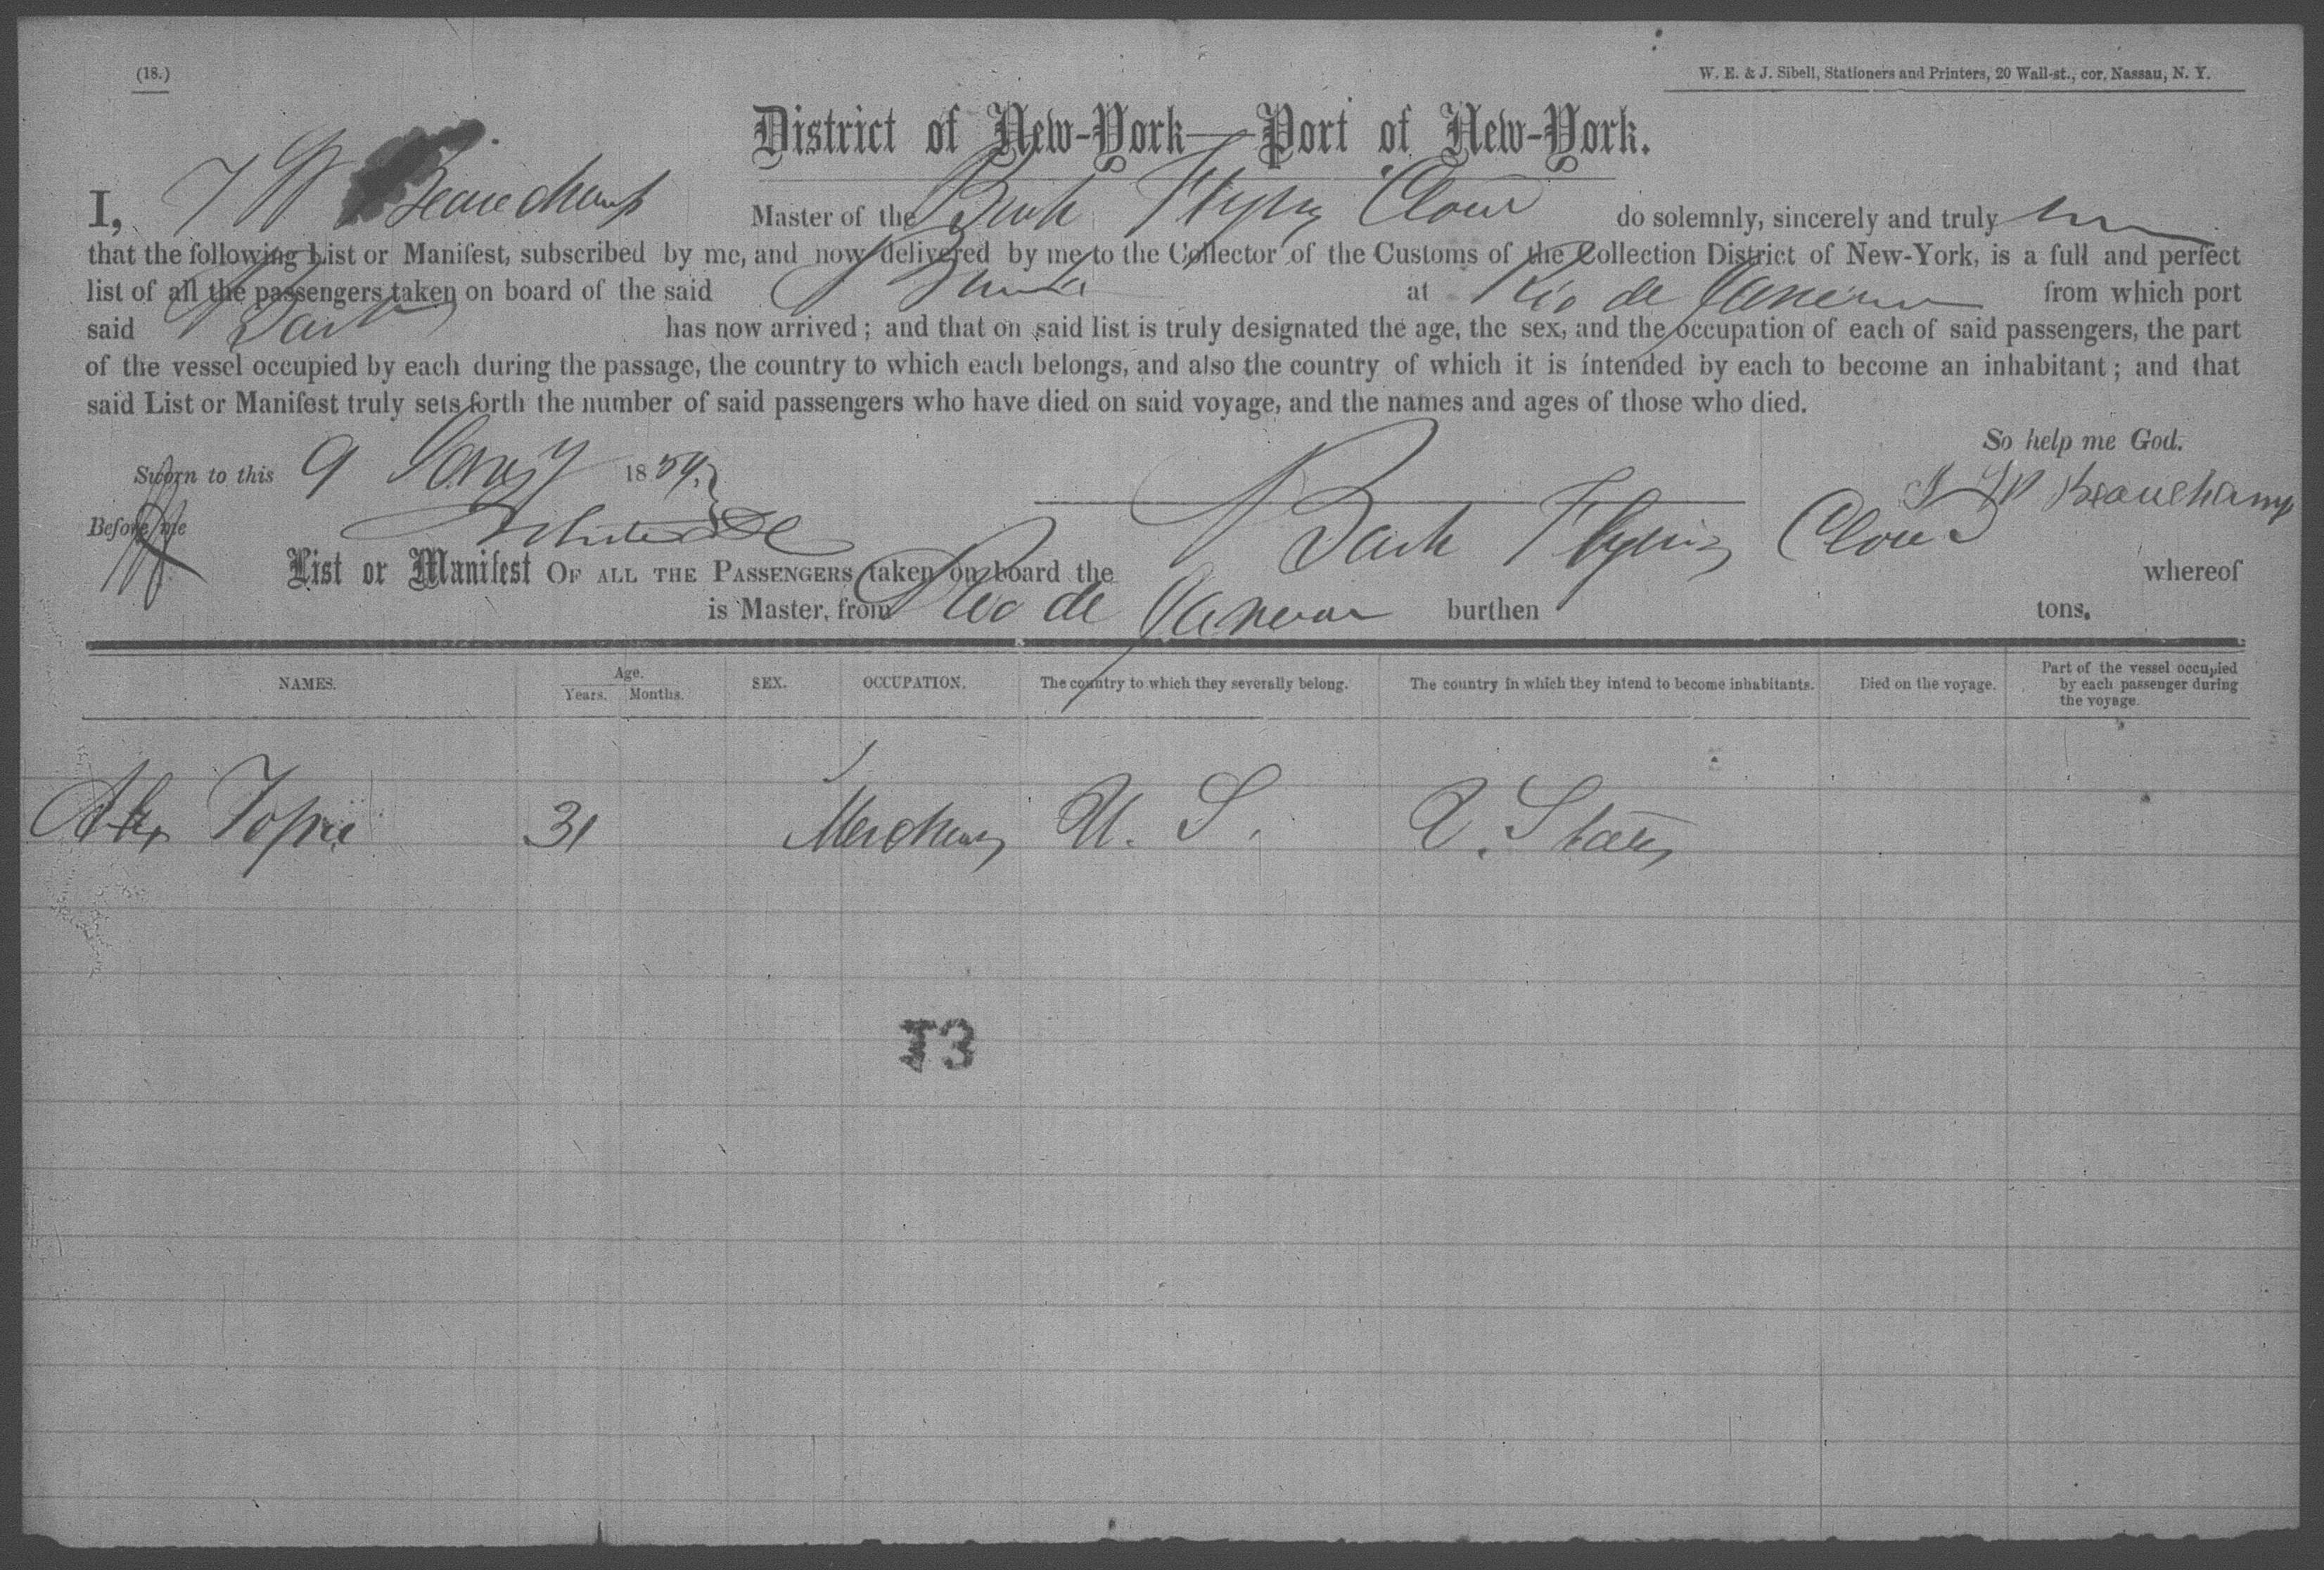 (18.)
W. E. & J. Sibell, Stationers and Printers, 20 Wall-st., cor. Nassau, N. Y.
District of New-York—Port of New-York.
I, W Beauchamp Master of the Bark Flying Cloud do solemnly, sincerely and truly
that the following List or Manifest, subscribed by me, and now delivered by me to the Collector of the Customs of the Collection District of New-York, is a full and perfect
list of all the passengers taken on board of the said Bark at Rio de Janeiro from which port
said Bark has now arrived; and that on said list is truly designated the age, the sex, and the occupation of each of said passengers, the part
of the vessel occupied by each during the passage, the country to which each belongs, and also the country of which it is intended by each to become an inhabitant; and that
said List or Manifest truly sets forth the number of said passengers who have died on said voyage, and the names and ages of those who died.
So help me God.
Sworn to this 9 Jany 1859. W Beauchamp
Before me
List or Manifest OF ALL THE PASSENGERS taken on board the Bark Flying Cloud whereof
is Master, from Rio de Janeiro burthen tons.
NAMES. Age. Years. Months. SEX. OCCUPATION. The country to which they severally belong. The country in which they intend to become inhabitants. Died on the voyage. Part of the vessel occupied by each passenger during the voyage.
31 Merchant U. S. U. States
13